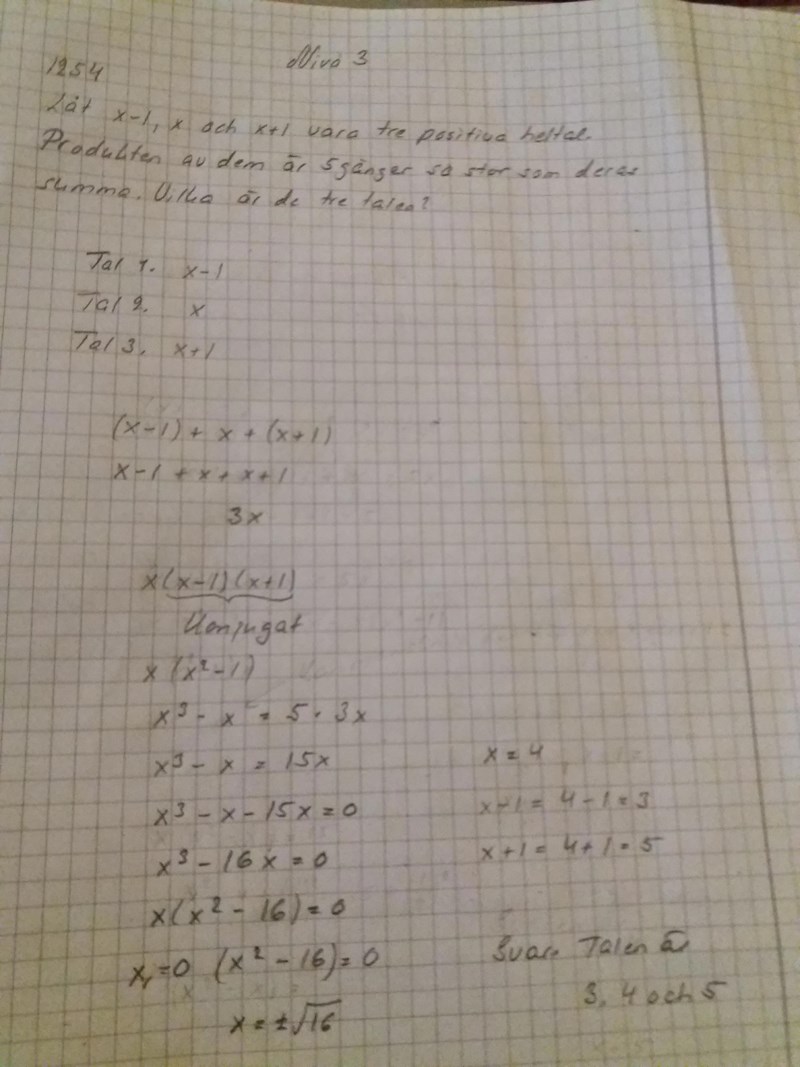 1254
Nivå 3
Låt x-1, x och x+1 vara tre positiva heltal.
Produkten av dem är 5 gånger så stor som deras
summa. Vilka är de tre talen?
Tal 1. x-1
Tal 2. x
Tal 3. x+1
(x-1) + x + (x+1)
x-1 + x + x+1
3x
x(x-1)(x+1)
Konjugat
x(x²-1)
x³ - x = 5 · 3x
x³ - x = 15x
x³ - x - 15x = 0
x³ - 16x = 0
x(x² - 16) = 0
x₁=0 (x² - 16) = 0
x = ±√16
x = 4
x-1 = 4-1 = 3
x+1 = 4+1 = 5
Svar: Talen är
3, 4 och 5